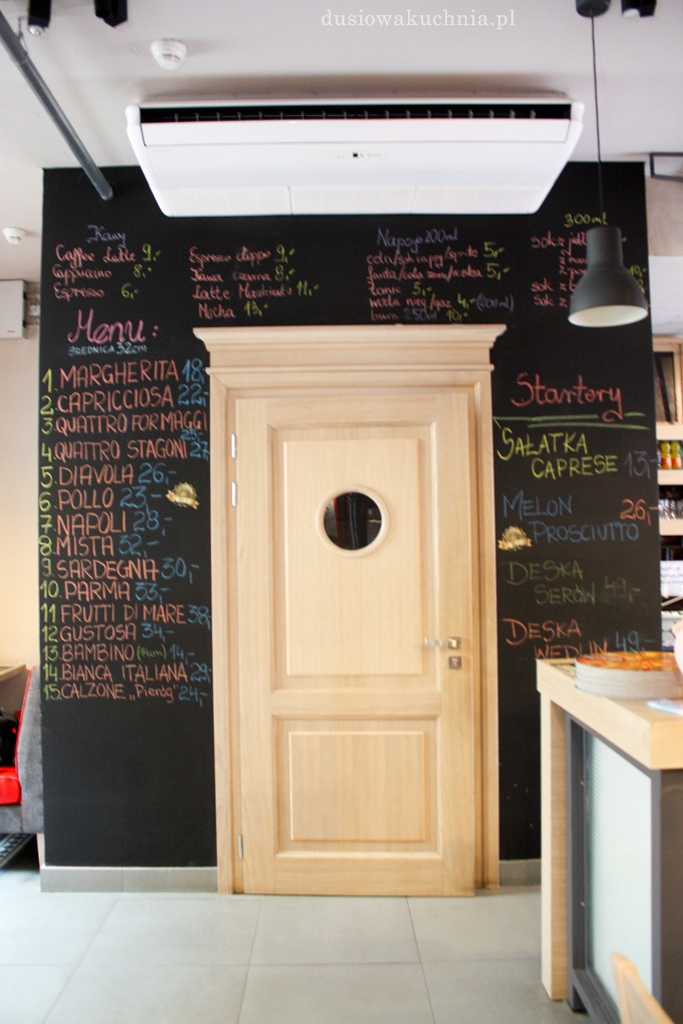 dusiowakuchnia.pl
Kawy
Caffee Latte 9,-
Cappuccino 8,-
Espresso 6,-
Espresso doppio 9,-
Kawa czarna 8,-
Latte Macchiato 11,-
Mocha 13,-
Napoje 200ml
5,-
5,-
Tonic 5,-
woda nieg/gaz 4,- (200ml)
250ml 10,-
300ml
sok z
sok
sok z
Menu:
ŚREDNICA 32cm
1. MARGHERITA 18,-
2. CAPRICCIOSA 22,-
3 QUATTRO FORMAGGI
25,-
4 QUATTRO STAGONI 27,-
5. DIAVOLA 26,-
6. POLLO 23,-
7. NAPOLI 28,-
8. MISTA 32,-
9. SARDEGNA 30,-
10. PARMA 33,-
11 FRUTTI DI MARE 38,-
12 GUSTOSA 34,-
13. BAMBINO 14,-
14. BIANCA ITALIANA 29,-
15. CALZONE „Pieróg" 24,-
Startery
SAŁATKA
CAPRESE 13,-
MELON 26,-
PROSCIUTTO
DESKA
SERÓW 49,-
DESKA
WĘDLIN 49,-